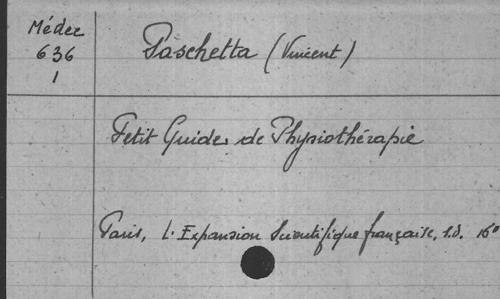 Médec
636
1
Paschetta (Vincent)
Petit Guide de Physiothérapie
Paris, L'Expansion Scientifique française, s.d. 16°